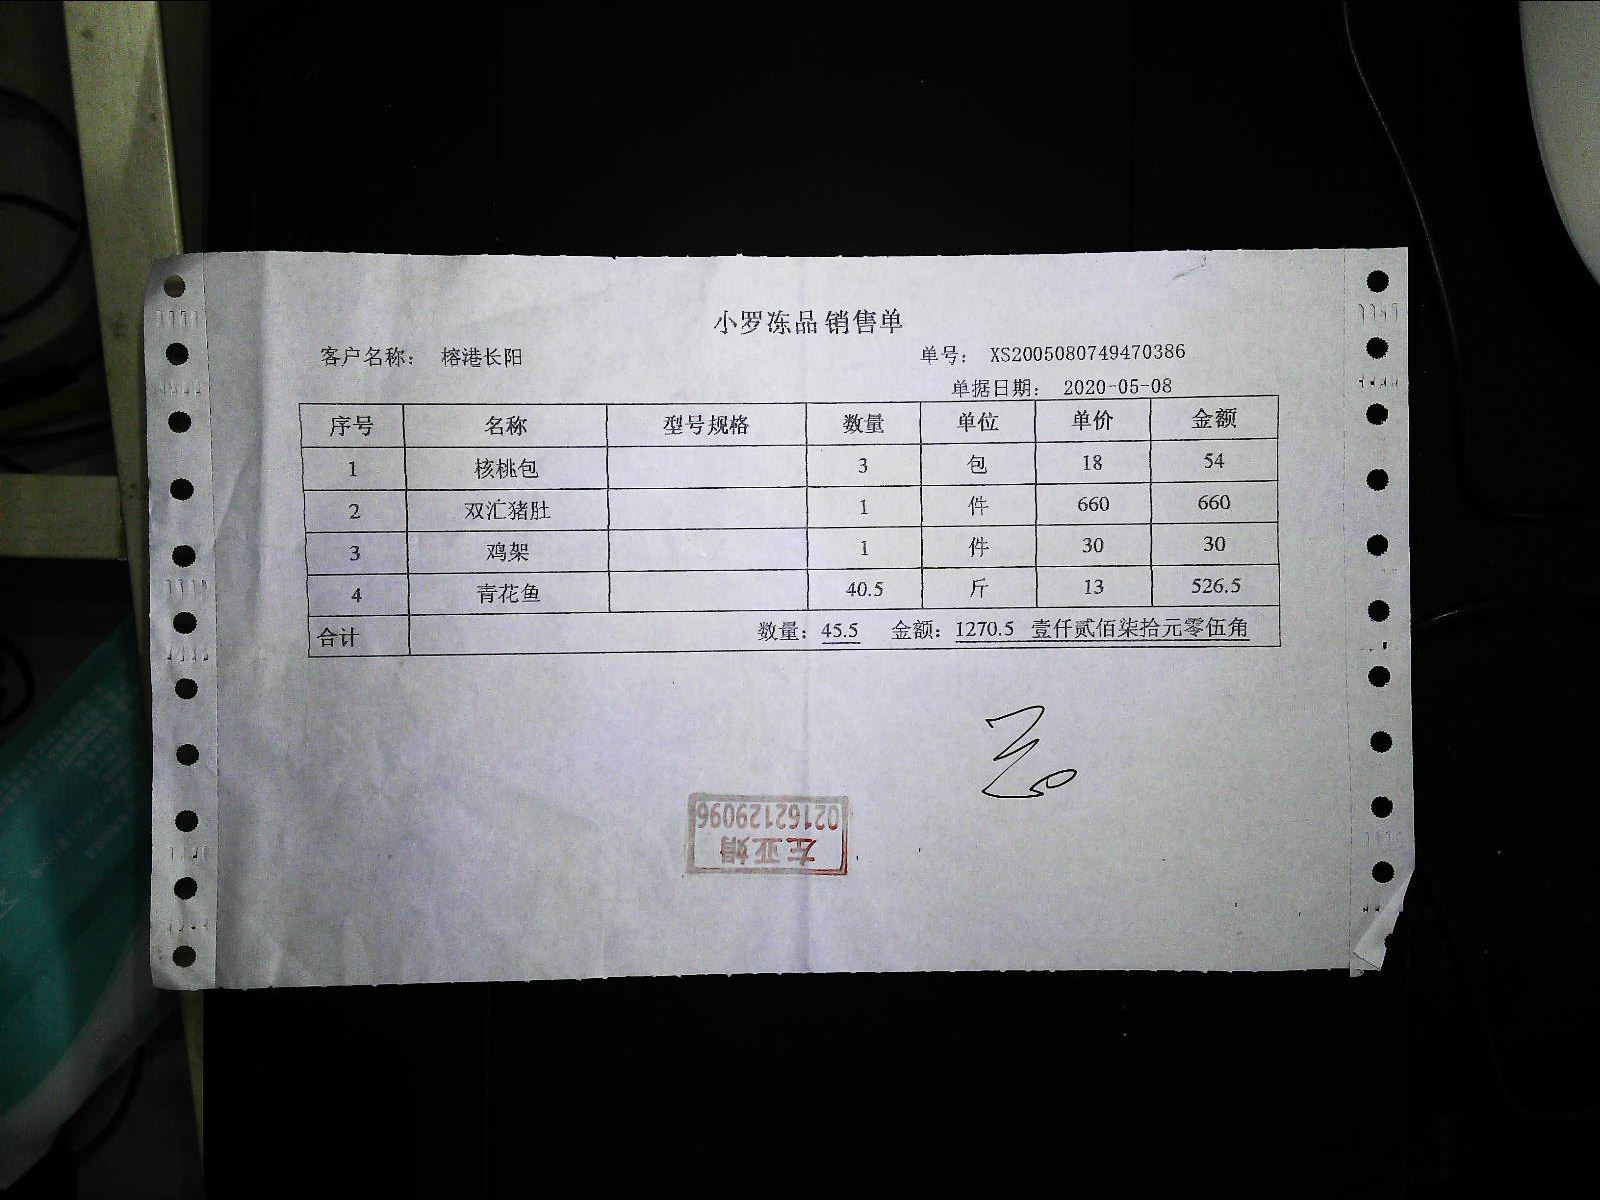 小罗冻品销售单
客户名称： 榕港长阳 单号： XS2005080749470386
单据日期： 2020-05-08
序号 名称 型号规格 数量 单位 单价 金额
1 核桃包 3 包 18 54
2 双汇猪肚 1 件 660 660
3 鸡架 1 件 30 30
4 青花鱼 40.5 斤 13 526.5
合计 数量：45.5 金额：1270.5 壹仟贰佰柒拾元零伍角
左亚娟
02162129096